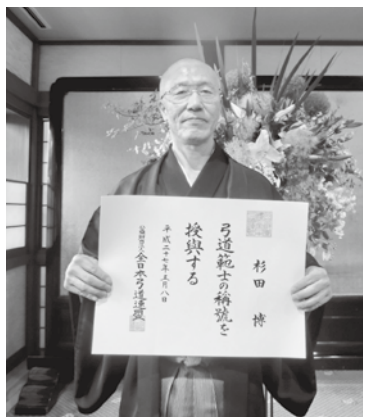 杉田 博
弓道範士の稱號を
授與する
平成二十七年五月八日
公益財団法人 全日本弓道連盟